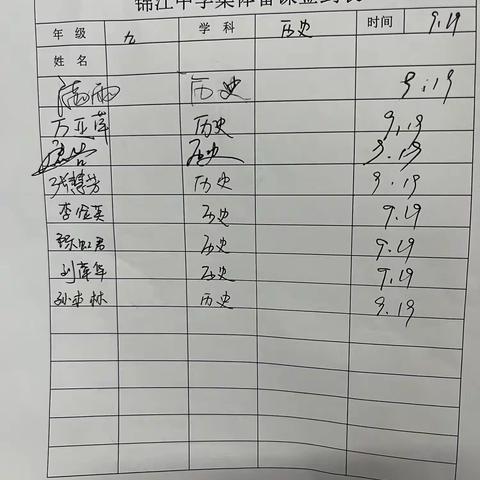 锦江中学集体备课签到表
年 级 九 学 科 历史 时间 9.19
姓 名
雨 历史 9.19
万亚萍 历史 9.19
历史 9.19
张慧芳 历史 9.19
李俭英 历史 9.19
张虹君 历史 9.19
刘萍华 历史 9.19
孙市林 历史 9.19